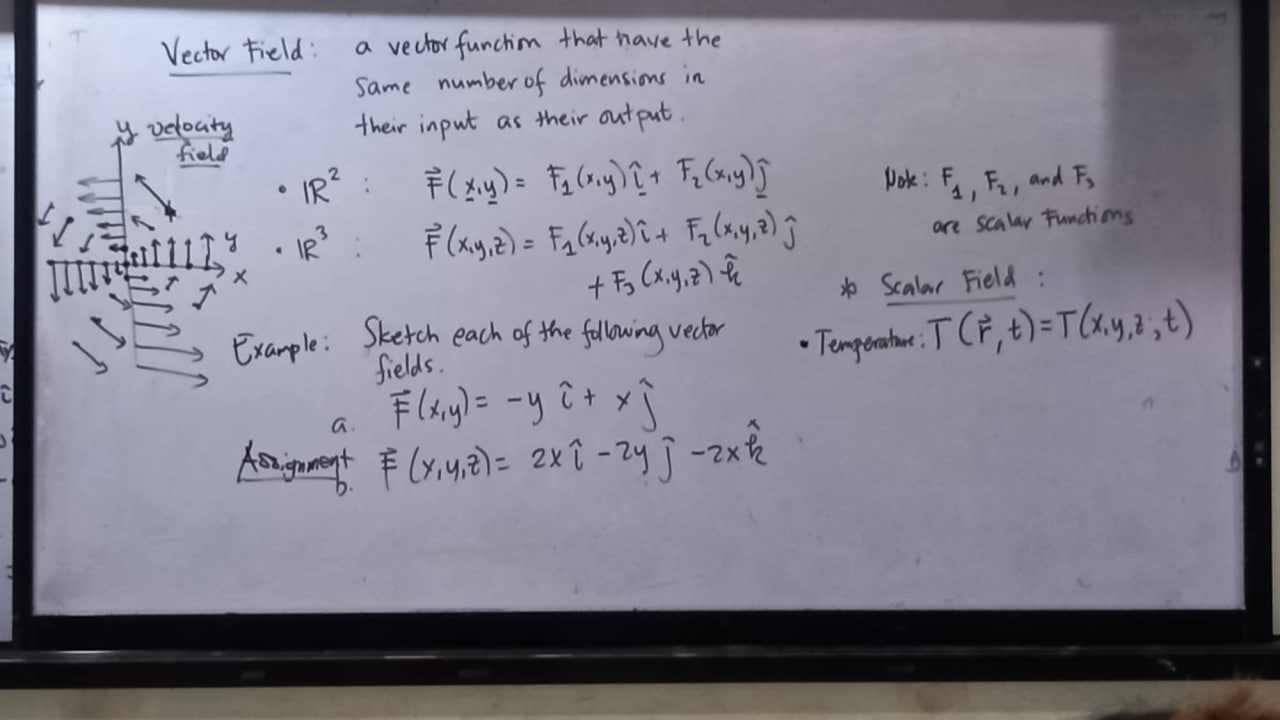 Vector Field: a vector function that have the
same number of dimensions in
their input as their output.
y velocity
field
y
x
• ℝ² : F⃗(x,y) = F₁(x,y)î + F₂(x,y)ĵ
• ℝ³ : F⃗(x,y,z) = F₁(x,y,z)î + F₂(x,y,z)ĵ
+ F₃(x,y,z)k̂
Note: F₁, F₂, and F₃
are scalar Functions
* Scalar Field :
• Temperature: T(r⃗, t) = T(x,y,z; t)
Example: Sketch each of the following vector
fields.
a. F⃗(x,y) = -y î + x ĵ
Assignment
b. F⃗(x,y,z) = 2x î - 2y ĵ - 2x k̂